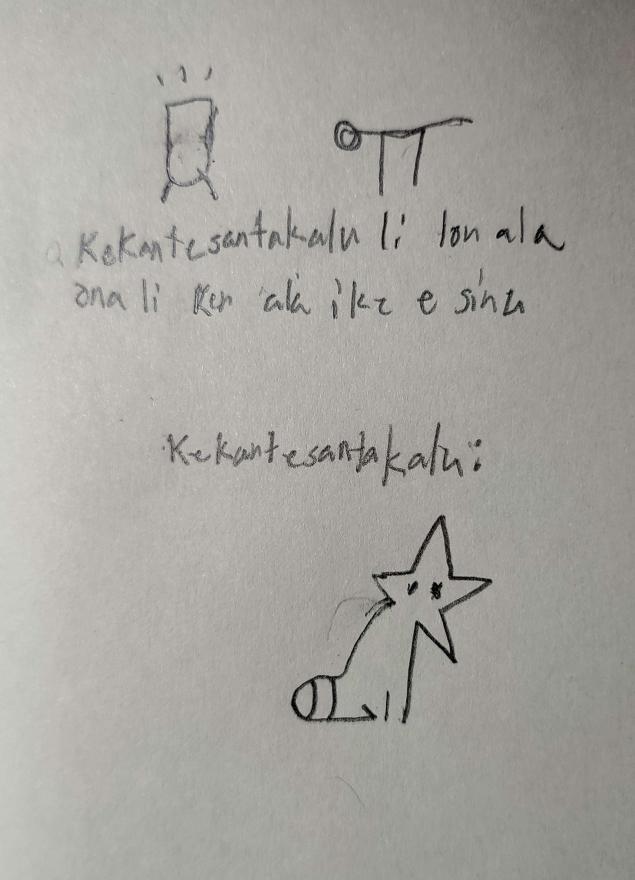 Kekantesantakalu li lon ala
ona li ken ala ike e sina
Kekantesantakalu: